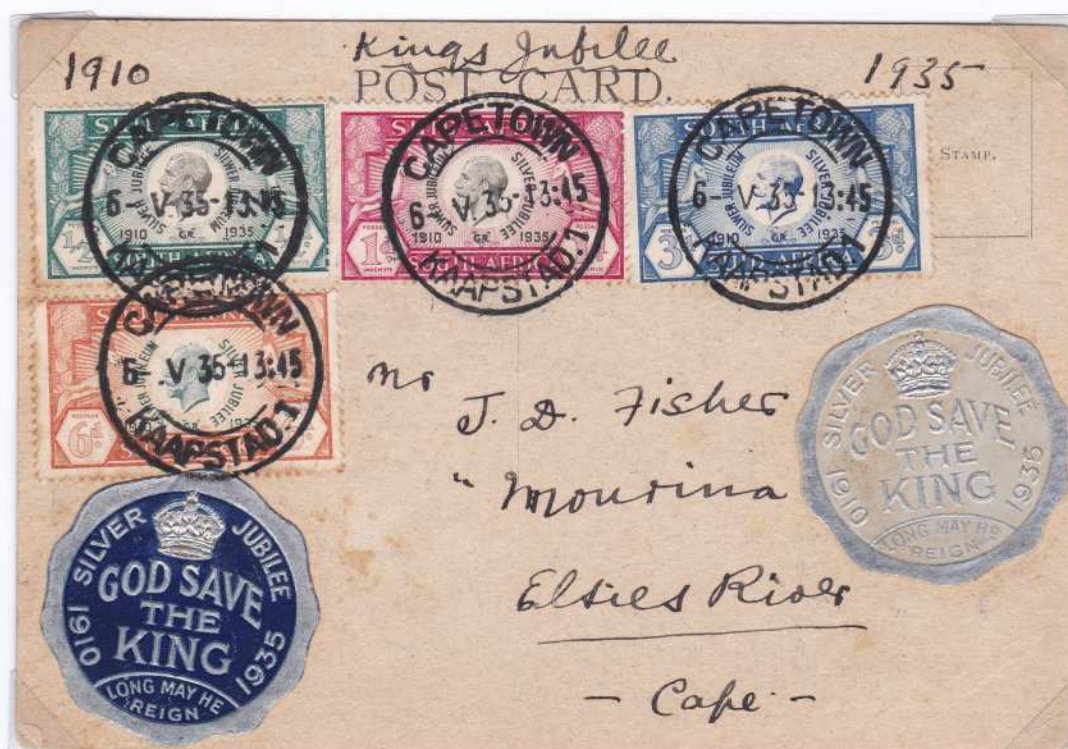 1910 Kings Jubilee 1935
POST CARD.
STAMP.
SOUTH AFRICA
SILWER JUBILEUM SILVER JUBILEE
1910 G.R. 1935
SOUTH AFRICA
CAPETOWN
6- V 35-13:45
KAAPSTAD.1
SOUTH AFRICA
SILWER JUBILEUM SILVER JUBILEE
1910 G.R. 1935
1D
SOUTH AFRICA
CAPETOWN
6- V 35-13:45
KAAPSTAD.1
SOUTH AFRICA
SILWER JUBILEUM SILVER JUBILEE
1910 G.R. 1935
3D
SOUTH AFRICA
CAPETOWN
6- V 35-13:45
KAAPSTAD.1
SILWER JUBILEUM SILVER JUBILEE
6D
CAPETOWN
6- V 35-13:45
KAAPSTAD.1
Mr
J. D. Fisher
"Mourina
Elsies River
- Cape -
SILVER JUBILEE
1910 1935
GOD SAVE
THE
KING
LONG MAY HE
REIGN
SILVER JUBILEE
1910 1935
GOD SAVE
THE
KING
LONG MAY HE
REIGN